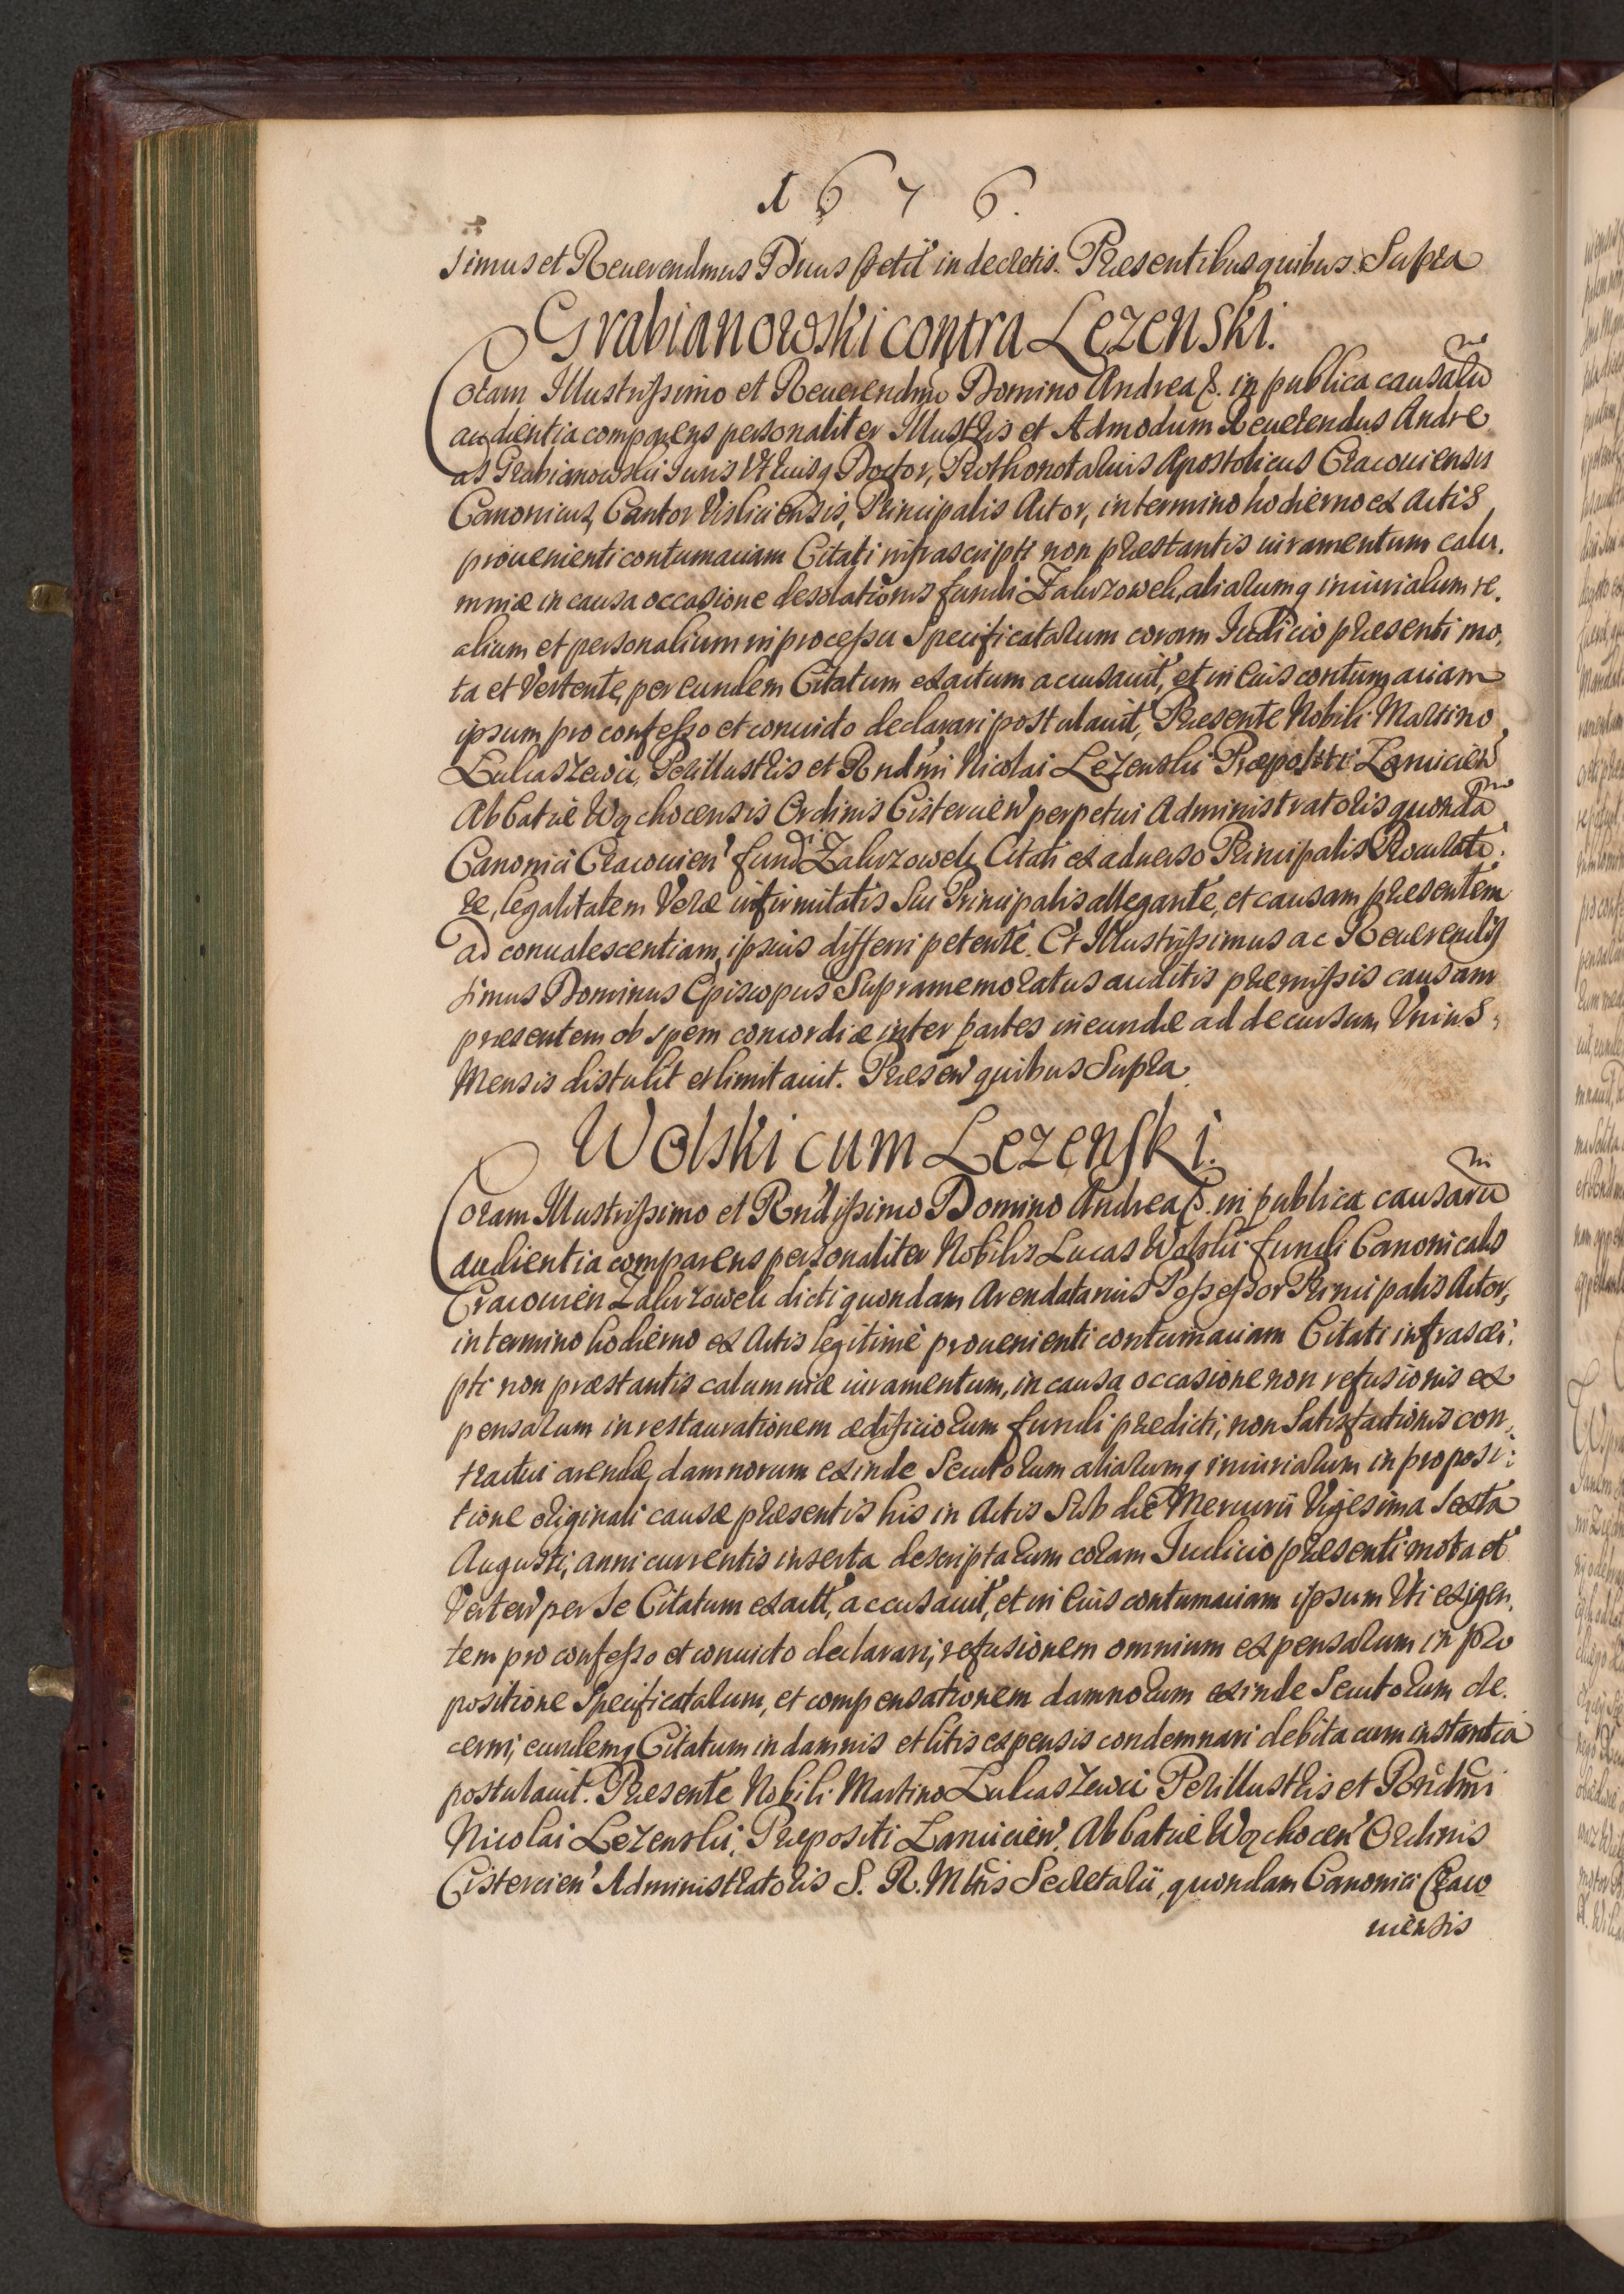 1676.
simus et Reuerendmus Dnus petit in decretis. Præsentibus quibus Supra
Grabianowski contra Lezenski.
Coram Illustrissimo et Reuerendmo Domino Andrea &. in publica causaru
audientia comparens personaliter Illustris et Admodum Reuerendus Andre
as Grabianowski Iuris Vtriusq Doctor, Prothonotarius Apostolicus Cracouiensis
Canonicus, Cantor Visliciensis, Principalis Actor, in termino hodierno ex Actis
prouenienti contumaciam Citati infrascripti non præstantis iuramentum calu.
mniæ in causa occasione desolationis fundi Zakrzowek, aliarumq iniuriarum re.
alium et personalium in processu Specificatarum coram Iudicio præsenti mo,
ta et Vertente, per eundem Citatum exactum accusauit, et in Eius contumaciam
ipsum pro confesso et conuicto declarari postulauit, Præsente Nobili Martino
Lukaszewic, Perillustris et Rndmi Nicolai Lezenski Præpositi Lanicien
Abbatiæ Wąchocensis Ordinis Cistercien perpetui Administratoris quonda
Canonici Cracouien fundi Zakrzowek Citati ex aduerso Principalis Procurato.
re, legalitatem Veræ infirmitatis Sui Principalis allegante, et causam præsentem
ad conualescentiam ipsius differri petente. Et Illustrissimus ac Reuerendis
simus Dominus Episcopus Supramemoratus auditis præmissis causam
præsentem ob spem concordiæ inter partes ineundæ ad decursum Vnius,
Mensis distulit et limitauit. Præsen quibus Supra
Wolski cum Lezenski.
Coram Illustrissimo et Rndissimo Domino Andrea &. in publica causaru
audientia comparens personaliter Nobilis Lucas Wolski fundi Canonicalis
Cracouien Zakrzowek dicti quondam Arendatarius Possessor Principalis Actor,
in termino hodierno ex Actis legitimè prouenienti contumaciam Citati infrascri.
pti non præstantis calumniæ iuramentum, in causa occasione non refusionis ex
pensarum in restaurationem ædificiorum fundi prædicti, non Satisfactionis con,
tractui arendæ, damnorum exinde Secutorum aliarumq iniuriarum in proposi:
tione originali causæ præsentis his in Actis Sub die Mercurii Vigesima Sexta
Augusti, anni currentis inserta descriptarum coram Iudicio præsenti mota et
Verten per Se Citatum exactt, accusauit, et in Eius contumaciam ipsum Vti exigen,
tem pro confesso et conuicto declarari, refusionem omnium expensarum in pro
positione Specificatarum, et compensationem damnorum exinde Secutorum de.
cerni, eundemq Citatum in damnis et litis expensis condemnari debita cum instantia
postulauit. Præsente Nobili Martino Lukaszewic Perillustris et Rndmi
Nicolai Lezenski, Præpositi Lanicien, Abbatiæ Wąchocen Ordinis
Cistercien Administratoris S. R. Mttis Secretarii, quondam Canonici Craco
uiensis